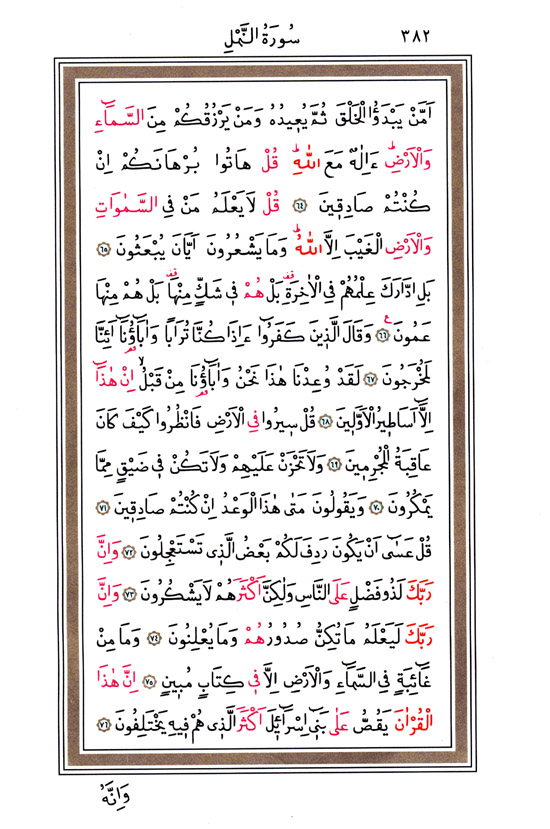 ٣٨٢ سُورَةُ النَّمْلِ
اَمَّنْ يَبْدَؤُا الْخَلْقَ ثُمَّ يُعٖيدُهُ وَمَنْ يَرْزُقُكُمْ مِنَ السَّمَاءِ
وَالْاَرْضِ ءَاِلٰهٌ مَعَ اللّٰهِ قُلْ هَاتُوا بُرْهَانَكُمْ اِنْ
كُنْتُمْ صَادِقٖينَ ﴿٦٤﴾ قُلْ لَا يَعْلَمُ مَنْ فِى السَّمٰوَاتِ
وَالْاَرْضِ الْغَيْبَ اِلَّا اللّٰهُ وَمَا يَشْعُرُونَ اَيَّانَ يُبْعَثُونَ ﴿٦٥﴾
بَلِ ادَّارَكَ عِلْمُهُمْ فِى الْاٰخِرَةِ بَلْ هُمْ فٖى شَكٍّ مِنْهَا بَلْ هُمْ مِنْهَا
عَمُونَ ﴿٦٦﴾ وَقَالَ الَّذٖينَ كَفَرُوا ءَاِذَا كُنَّا تُرَابًا وَاٰبَاؤُنَا اَئِنَّا
لَمُخْرَجُونَ ﴿٦٧﴾ لَقَدْ وُعِدْنَا هٰذَا نَحْنُ وَاٰبَاؤُنَا مِنْ قَبْلُ اِنْ هٰذَا
اِلَّا اَسَاطٖيرُ الْاَوَّلٖينَ ﴿٦٨﴾ قُلْ سٖيرُوا فِى الْاَرْضِ فَانْظُرُوا كَيْفَ كَانَ
عَاقِبَةُ الْمُجْرِمٖينَ ﴿٦٩﴾ وَلَا تَحْزَنْ عَلَيْهِمْ وَلَا تَكُنْ فٖى ضَيْقٍ مِمَّا
يَمْكُرُونَ ﴿٧٠﴾ وَيَقُولُونَ مَتٰى هٰذَا الْوَعْدُ اِنْ كُنْتُمْ صَادِقٖينَ ﴿٧١﴾
قُلْ عَسٰى اَنْ يَكُونَ رَدِفَ لَكُمْ بَعْضُ الَّذٖى تَسْتَعْجِلُونَ ﴿٧٢﴾ وَاِنَّ
رَبَّكَ لَذُو فَضْلٍ عَلَى النَّاسِ وَلٰكِنَّ اَكْثَرَهُمْ لَا يَشْكُرُونَ ﴿٧٣﴾ وَاِنَّ
رَبَّكَ لَيَعْلَمُ مَا تُكِنُّ صُدُورُهُمْ وَمَا يُعْلِنُونَ ﴿٧٤﴾ وَمَا مِنْ
غَائِبَةٍ فِى السَّمَاءِ وَالْاَرْضِ اِلَّا فٖى كِتَابٍ مُبٖينٍ ﴿٧٥﴾ اِنَّ هٰذَا
الْقُرْاٰنَ يَقُصُّ عَلٰى بَنٖى اِسْرَائٖلَ اَكْثَرَ الَّذٖى هُمْ فٖيهِ يَخْتَلِفُونَ ﴿٧٦﴾
وَاِنَّهُ